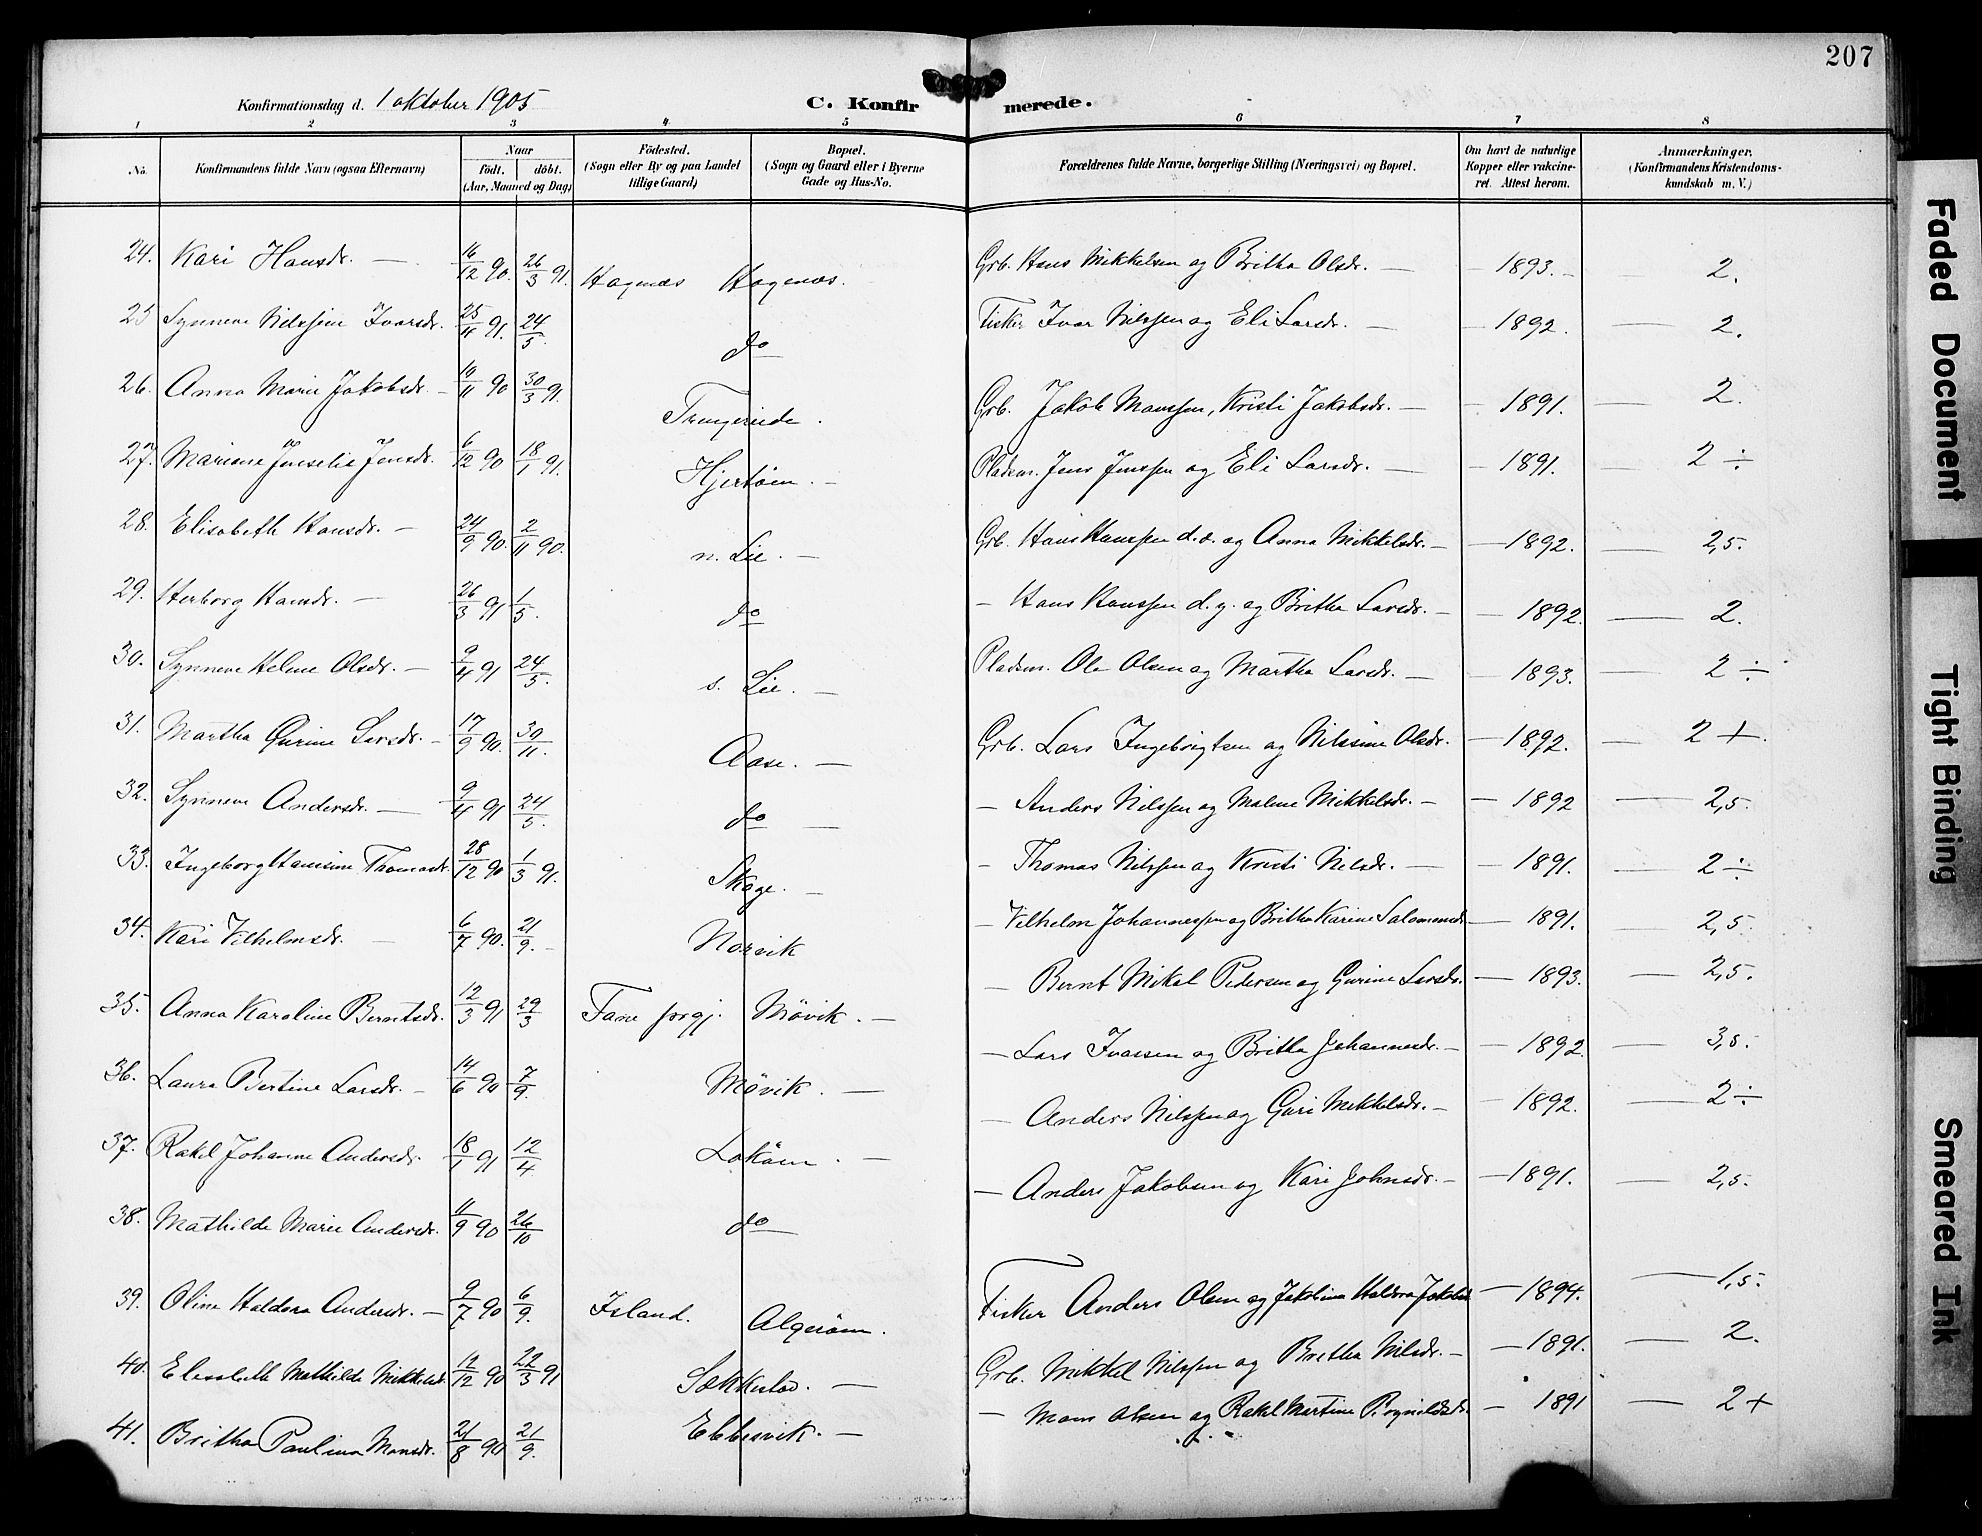 207
Konfirmationsdag d. 1 oktober 1905 C. Konfirmerede.
1 2 3 4 5 6 7 8
No. Konfirmandens fulde Navn (ogsaa Efternavn) Naar födt. döbt. (Aar, Maaned og Dag) Födested. (Sogn eller By og paa Landet tillige Gaard) Bopæl. (Sogn og Gaard eller i Byerne Gade og Hus-No. Forældrenes fulde Navne, borgerlige Stilling (Næringsvei) og Bopæl. Om havt de naturlige Kopper eller vakcineret. Attest herom. Anmærkninger. (Konfirmandens Kristendomskundskab m. V.)
24. Kari Hansdr. — 16/12 90. 26/3 91. Hagenæs Hagenæs. Grb. Hans Mikkelsen og Britha Olsdr. — 1893. — 2.
25 Synneve Nilssine Ivarsdr. 25/4 91. 24/5. do Fisker Ivar Nilssen og Eli Larsdr. — 1892. — 2.
26. Anna Marie Jakobsdr. — 10/11 90 30/3 91. Grb. Jakob Monssen, Kristi Jakobsdr. — 1891. — 2.
27. Mariane Jenselie Jensdr. 6/12 90 18/1 91. Hjertöen. — Pladsm. Jens Jenssen og Eli Larsdr. — 1891. — 2 ÷
28. Elisabeth Hansdr. — 24/9 90. 2/11 90. n. Lie. — Grb. Hans Hanssen d. æ. og Anna Mikkelsdr. — 1892. — 2,5.
29. Herborg Hansdr. — 26/3 91 1/5. do — Hans Hanssen d. y. og Britha Larsdr. — 1892. — 2.
30. Synneve Helene Olsdr. — 9/4 91 24/5. s. Lie. — Pladsm. Ole Olsen og Martha Larsdr. — 1893. — 2 ÷
31. Martha Gurine Larsdr. — 17/9 90. 30/11. Aase. — Grb. Lars Ingebrigtsen og Nilsine Olsdr. — 1892. — 2 +
32. Synneve Andersdr. — 9/4 91 24/5. do — — Anders Nilssen og Malene Mikkelsdr. — 1892 — 2,5.
33. Ingeborg Hansine Thomasdr. 28/12 90 1/3 91. Skage. — — Thomas Nilssen og Kristi Nilsdr. — 1891. — 2 ÷
34. Kari Vilhelmsdr. — 6/7 90. 21/9. Norvik — Vilhelm Johannessen og Britha Karine Salomonsdr. — 1891. — 2,5.
35. Anna Karoline Berntsdr. 12/3 91 29/3 Fane prgj. Mövik. — — Bernt Mikal Pedersen og Gurine Larsdr. — 1893. — 2,5.
36. Laura Bertine Larsdr. — 14/6 90 7/9. Mövik. — — Lars Ivarsen og Britha Johannesdr. — 1892. — 3,5.
37. Rakel Johanne Andersdr. 18/1 91 12/4 Loköen. — — Anders Nilssen og Guri Mikkelsdr. — 1892. — 2 ÷
38. Mathilde Marie Andersdr. 11/9 90 26/10 do — Anders Jakobsen og Kari Johnsdr. — 1891. — 2,5.
39. Oline Haldora Andersdr. — 9/7 90 6/9. Island. Algeröen. Fisker Anders Olsen og Jakobina Haldora Jakobsd — 1894. — 1,5.
40. Elisabeth Mathilde Mikkelsd. 12/12 90 22/3 91 Sækkestad. — Grb. Mikkel Nilssen og Britha Nilsdr. — 1891. — 2.
41. Britha Paulina Monsdr. 21/8 90 21/9. Ebbesvik. — — Mons Olsen og Rakel Martine Rognildsdr. — 1891 — 2 +
Faded Document
Tight Binding
Smeared Ink